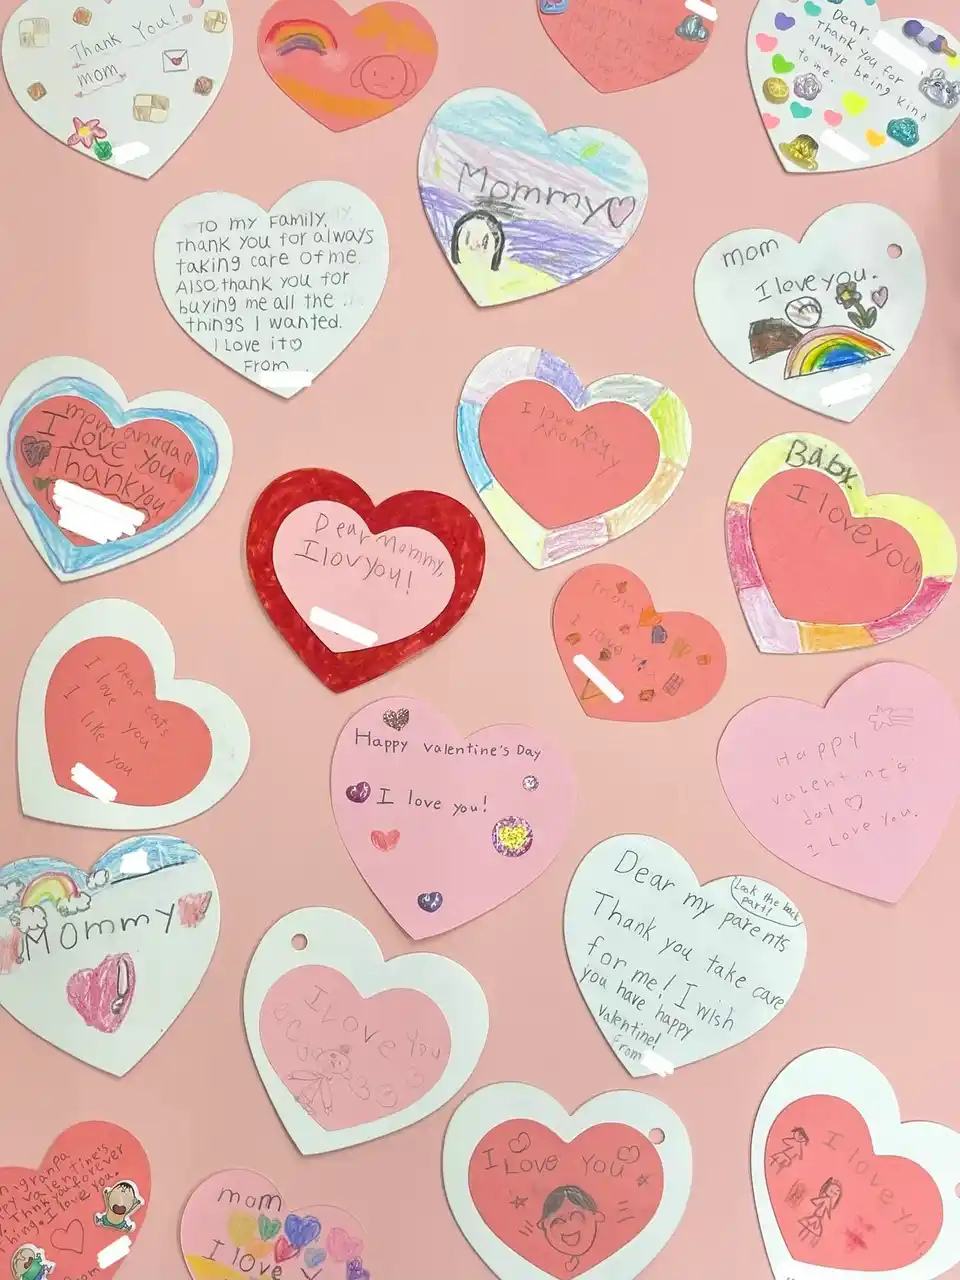 Thank You!
mom
Dear.
Thank you for
always being kind
to me.
Mommy
To my Family,
Thank you for always
taking care of me.
Also, thank you for
buying me all the
things I wanted.
I Love it♡
From
mom
I love you.
mom and dad
I love you
Thank you
I love you
Mommy
Baby.
I love you
Dear Mommy,
I lov you!
mom
I love
Dear cats
I love you
I like you
Happy valentine's Day
I love you!
Happy
valentine's
day ♡
I Love you.
Mommy
Look the back
part!
Dear my parents
Thank you take care
for me! I wish
you have happy
Valentine!
From
I Love you
I Love you
I love you
granpa
valentine's
Thank you forever
I love you.
mom
I love